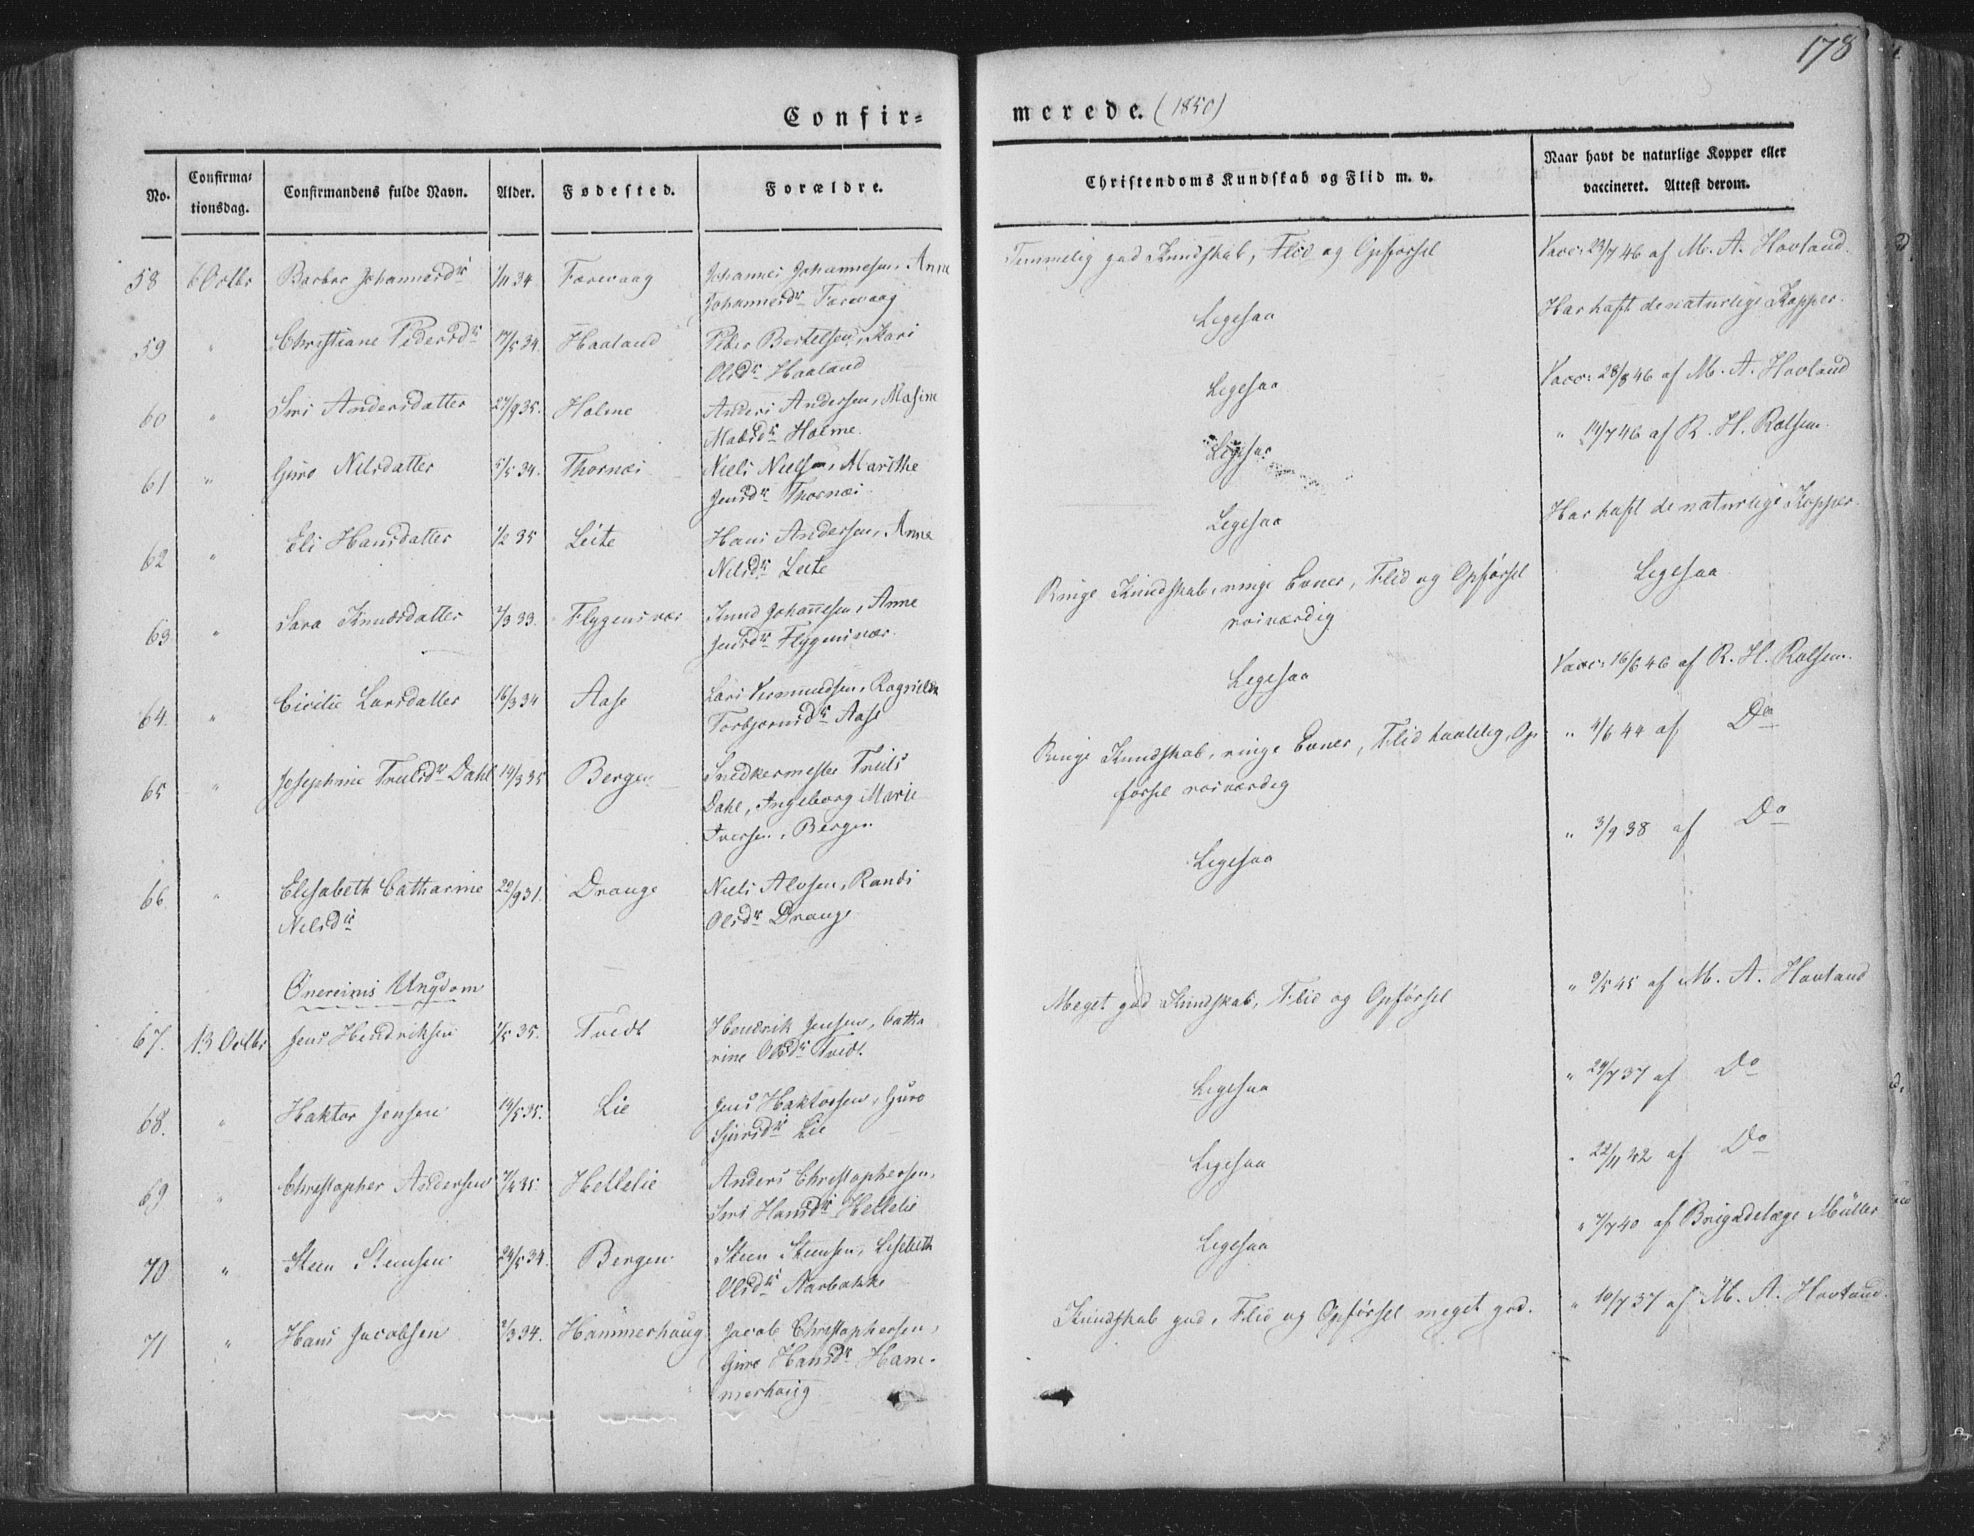 178
Confir-
merede. (1850)
No.
Confirma-
tionsdag.
Confirmandens fulde Navn.
Alder.
Fødested.
Forældre.
Christendoms Kundskab og Flid m. v.
Naar havt de naturlige Kopper eller
vaccineret. Attest derom.
58 6 Octbr Barbro Johannesdr 34 Farevaag Johannes Johannesen, Anne
Johannesdr Farevaag
Temmelig god Kundskab, Flid og Opførsel
Vacc: 23/7 46 af M. A. Hovland.
59 " Christiane Pedersdr 17/5 34 Haaland Peder Bertelsen, Kari
Olsdr Haaland
Ligesaa
Har haft de naturlige Kopper.
60 " Siri Andersdatter 27/9 35. Holme Anders Andersen,
Madsdr Holme.
Ligesaa
Vacc: 28/8 46 af M. A. Hovland
61 " Guro Nilsdatter 5/5 34. Thornæs Niels Nielsen, Marithe
Jensdr Thornæs
Ligesaa
" 14/7 46 af R. H. Rolfsen.
62 " Eli Hansdatter 1/2 35 Leite Hans Andersen, Anne
Nilsdr Leite
Ligesaa
Har haft de naturlige Kopper.
63 " Sara Knudsdatter 1/3 33. Flygensvær Knud Johannesen, Anne
Jensdr Flygensvær.
Ringe Kundskab, ringe Evner, Flid og Opførsel
rosværdig
Ligesaa
64. " Cicilie Larsdatter 16/3 34 Aase Lars Vermundsen, Ragnilde
Torbjørnsdr Aase
Ligesaa
Vacc: 16/6 46 af R. H. Rolfsen.
65 " Josephine Trulsdr Dahl 14/3 35 Bergen Snedkermester Truls
Dahl, Ingeborg Marie
Iversen, Bergen
Ringe Kundskab, ringe Evner, Flid taalelig, Op-
førsel rosværdig
" 4/6 44 af Do
66 " Elisabeth Catharine 22/9 31. Drange Niels Alvsen, Randi
Nilsdr
Olsdr Drange
Ligesaa
" 3/9 38 af Do
Ønereims Ungdom
67. 13 Octbr Jens Hendriksen 1/5 35. Tvedt Hendrik Jensen, Catha
rine Olsdr Tvedt.
Meget god Kundskab, Flid og Opførsel
" 9/5 45 af M. A. Hovland
68. " Haktor Jensen 14/5 35. Lie Jens Haktorsen, Guro
Sjursdr Lie
Ligesaa
" 29/7 37 af Do
69 " Christopher Andersen 35. Hellelie Anders Christophersen,
Siri Hansdr Hellelie
Ligesaa
" 22/11 42 af Do
70 " Steen Steensen 24/5 34. Bergen Steen Steensen, Lisebeth
Olsdr Narbakke
Ligesaa
" 7/7 40 af Brigadelæge Müller
71 " Hans Jacobsen 2/3 34. Hammerhaug Jacob Christophersen,
Guro Hansdr Ham-
merhaug
Kundskab god, Flid og Opførsel meget god.
" 10/7 37 af M. A. Hovland.